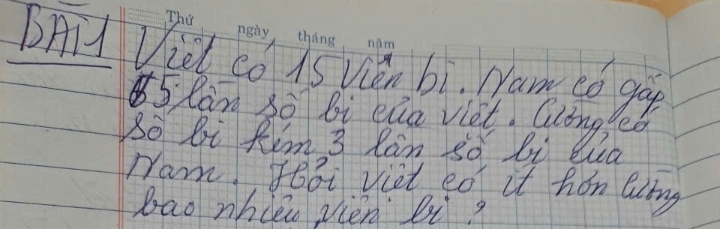 Thứ ngày tháng năm
BÀI 1
Việt có 15 viên bi. Nam có gấp
5 lần số bi của việt. Cường có
số bi kém 3 lần số bi của
Nam. Hỏi việt có ít hơn Cường
bao nhiêu viên bi ?